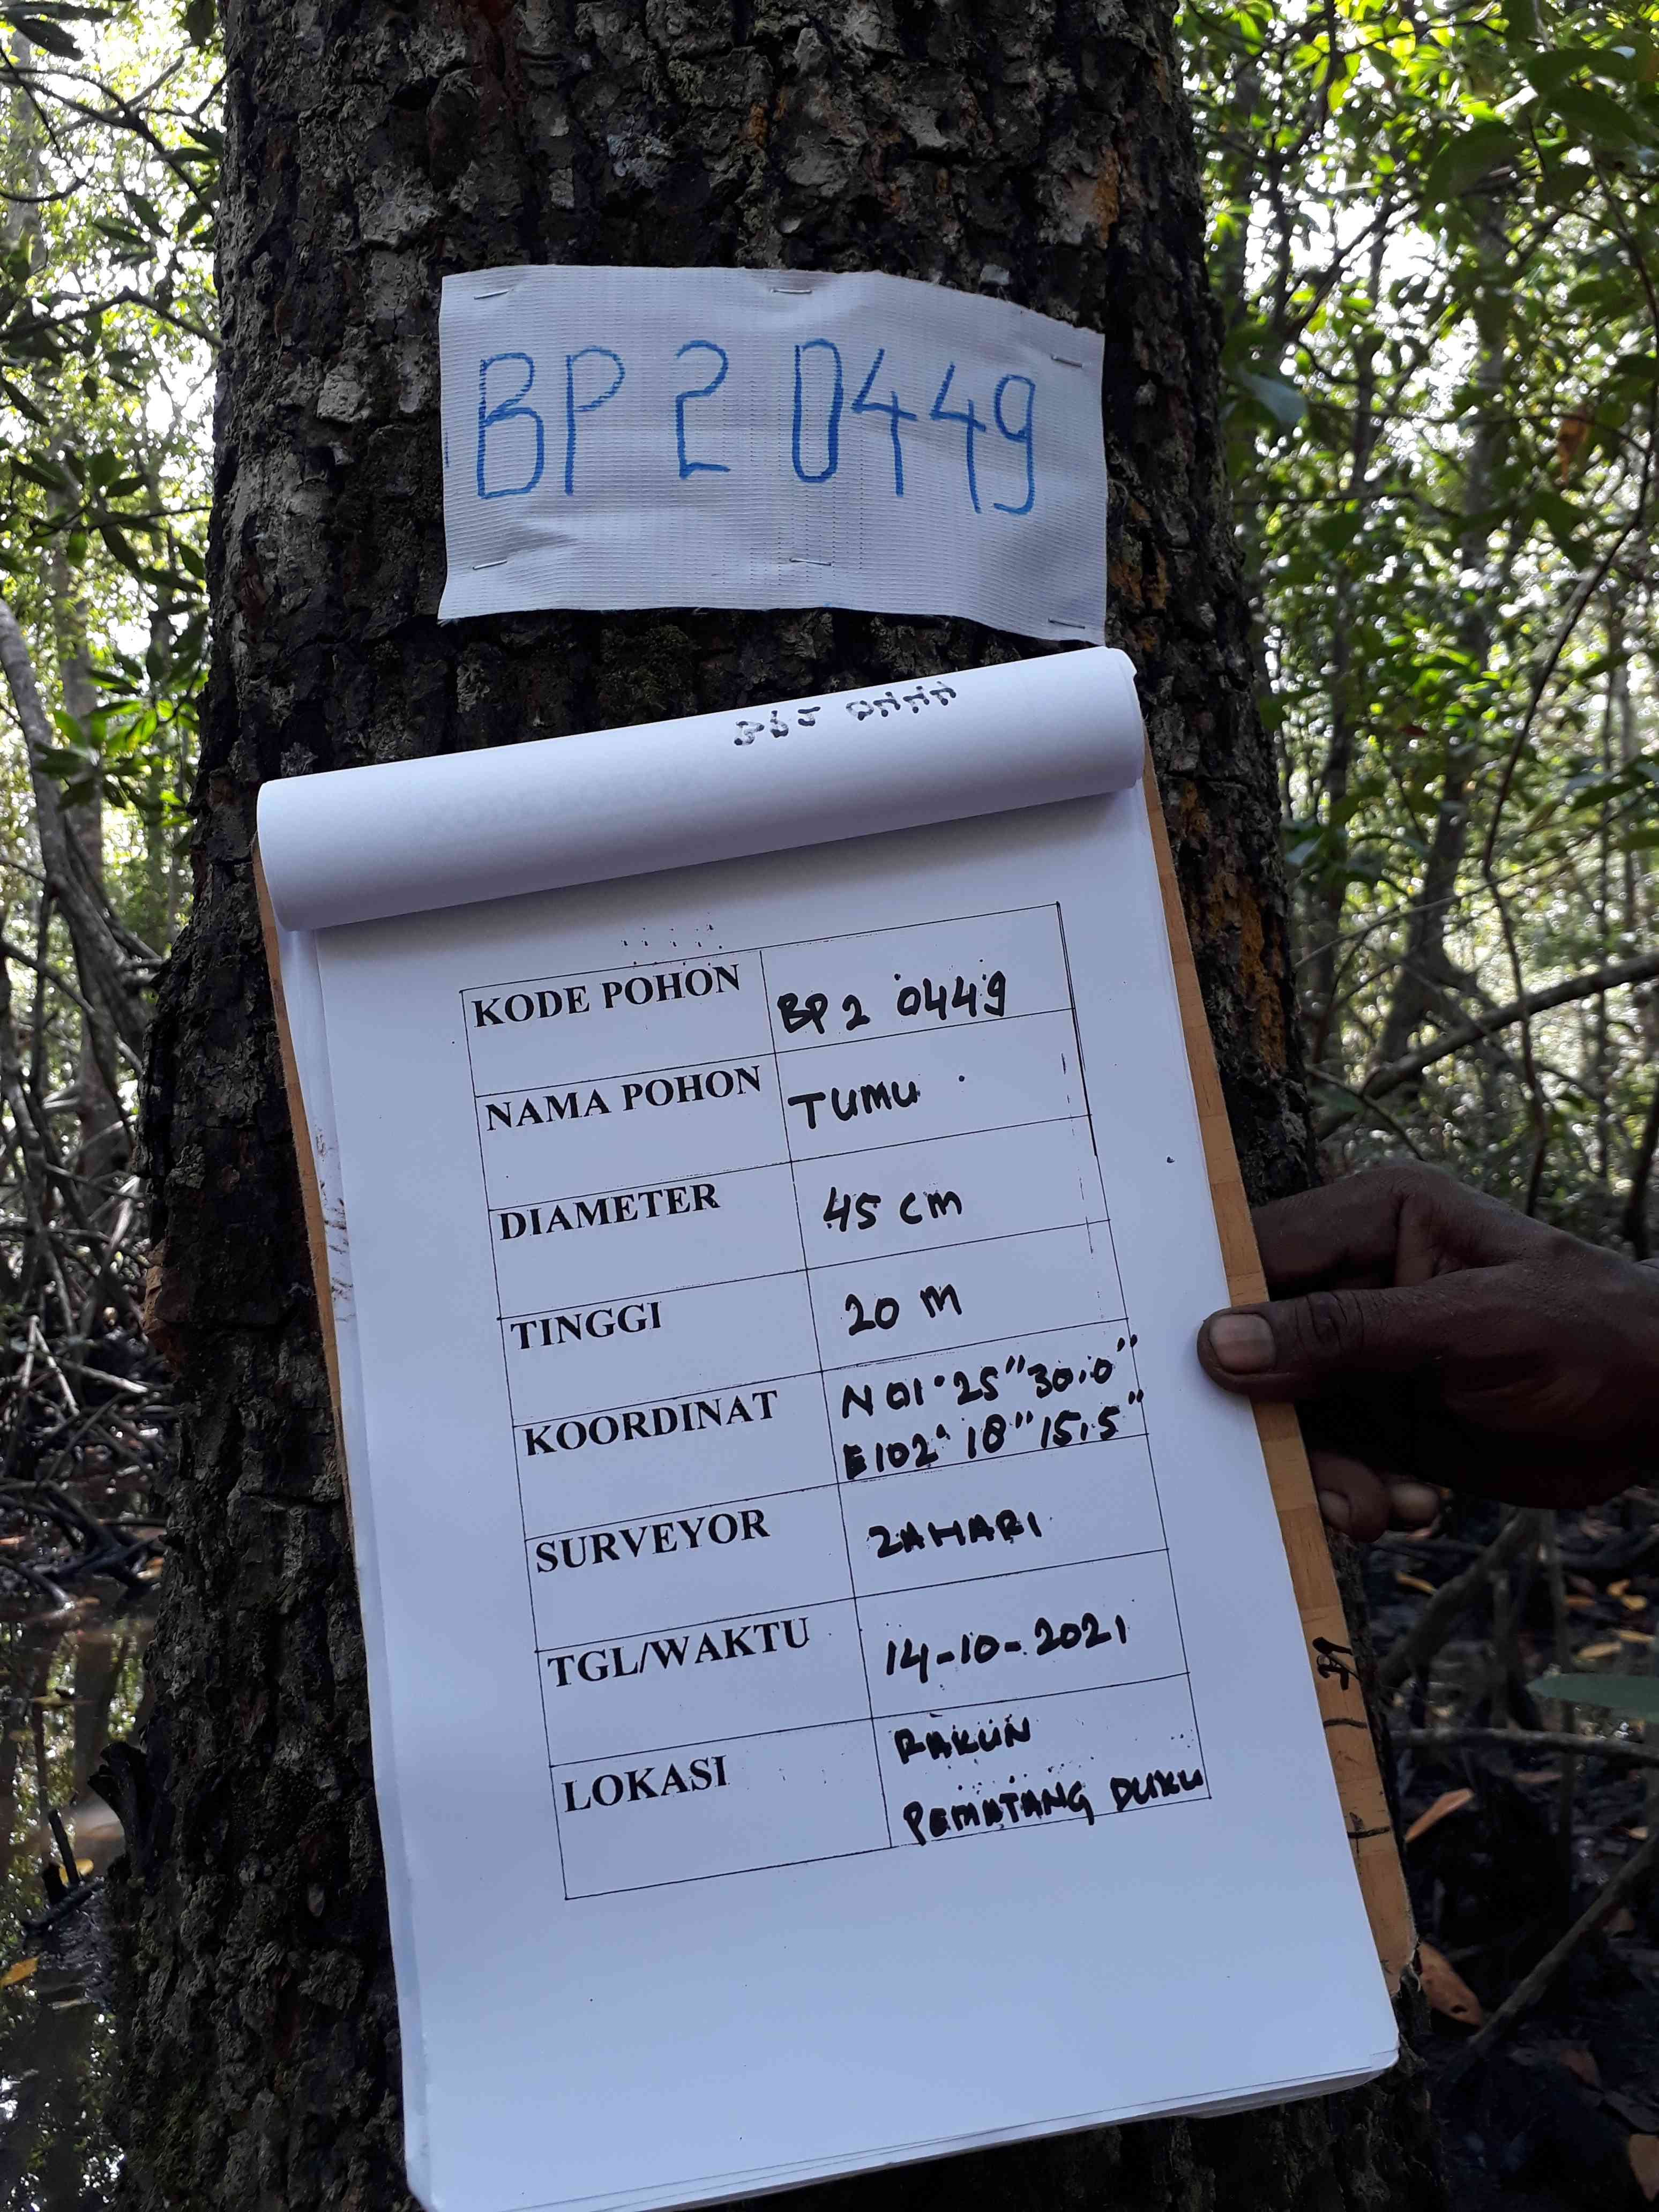 BP 2 0449
KODE POHON BP 2 0449
NAMA POHON TUMU
DIAMETER 45 cm
TINGGI 20 M
KOORDINAT N 01°25"30.0"
E102° 18"15,5"
SURVEYOR ZAHARI
TGL/WAKTU 14-10-2021
LOKASI RAKUN
PEMATANG DUKU